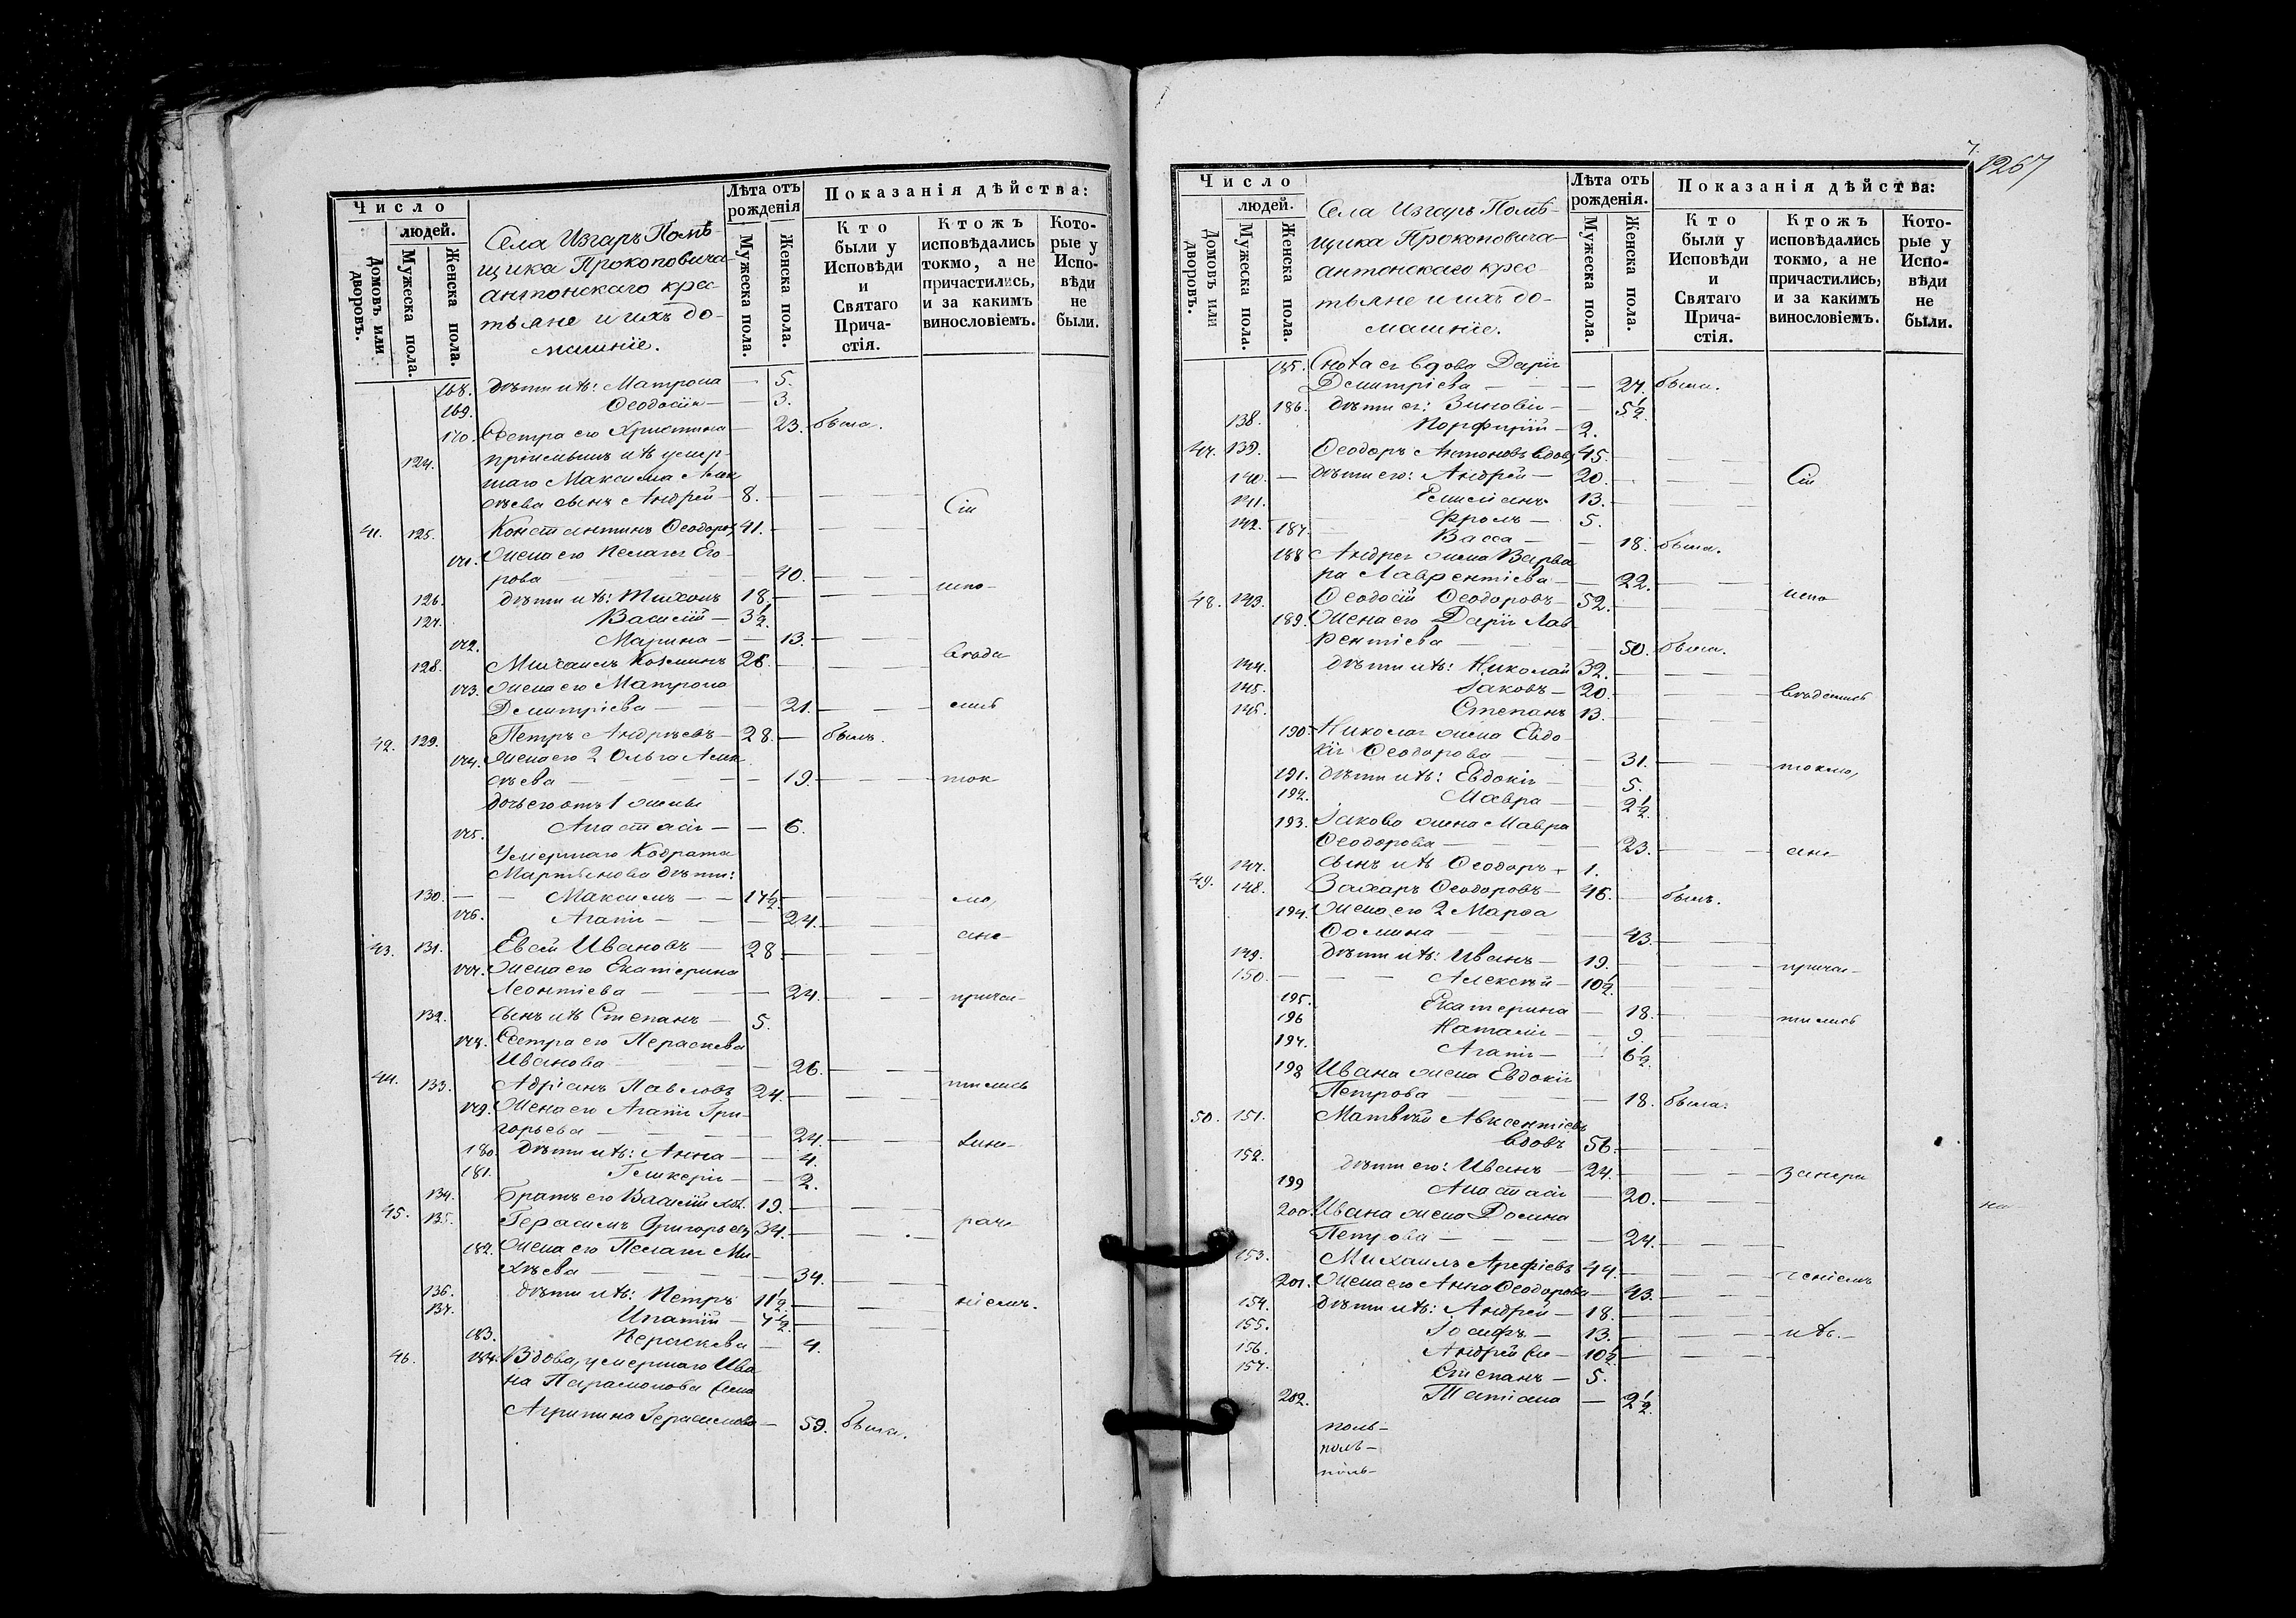 Число
людей.
Домовъ или дворовъ.
Мужеска пола.
Женска пола.
Села Изгаръ Помѣ-
щика Прокоповича-
антонскаго крес-
тьяне и ихъ до-
машніе.
Лѣта отъ рожденія
Мужеска пола.
Женска пола.
Показанія дѣйства:
Кто были у Исповѣди и Святаго Прича-стія.
Ктожъ исповѣдались токмо, а не причастились, и за какимъ винословіемъ.
Кото-рые у Испо-вѣди не были.
168. дѣти ихъ: Матрона — 5.
169. Ѳеодосія — 3.
170. Сестра его Христина — 23. была.
124. пріемышъ ихъ умер-
шаго Максима Алек
сѣева сынъ Андрей — 8. Сіи
41. 125. Константинъ Ѳеодоровъ 41.
171. Жена его Пелагія Его-
рова 40.
126. дѣти ихъ: Тихонъ 18. испо-
127. Василій — 3 1/2
172. Марина — 13.
128. Михаилъ Козминъ 26.
173. Жена его Матрона
Димитріева — 21.
42. 129. Петръ Андрѣевъ — 28. былъ.
174. Жена его 2 Ольга Алек
сѣева — 19. ток
дочь его отъ 1 жены
175. Анастасія — 6.
Умершаго Кодрата
Мартынова дѣти:
130. Максимъ — 17 1/2 мо,
176. Агапія — 24.
43. 131. Евсей Ивановъ — 28. ане-
177. Жена его Екатерина
Леонтіева — 24. прича-
132. сынъ ихъ Степанъ — 5.
178. Сестра его Параскева
Иванова — 26.
44. 133. Адріанъ Павловъ 24. тились
179. Жена его Агапія Гри-
горьева — 24.
180. Дѣти ихъ: Анна — 4.
181. Гликерія — 2.
134. Братъ его Василій 19.
45. 135. Герасимъ Григорьевъ 34.
182. Жена его Пелагія Ми-
хѣева — 34.
136. дѣти ихъ: Петръ 11 1/2
137. Ипатій — 7 1/2 ніемъ.
183. Параскева — 4.
46. 184. Вдова, умершаго Ива
на Парамонова жена
Агрипина Герасимова — 59. была.
7.
1267
Число
людей.
Домовъ или дворовъ.
Мужеска пола.
Женска пола.
Села Изгаръ Помѣ-
щика Прокоповича-
антонскаго крес-
тьяне и ихъ до-
машніе.
Лѣта отъ рожденія.
Мужеска пола.
Женска пола.
Показанія дѣйства:
Кто были у Исповѣди и Святаго Прича-стія.
Ктожъ исповѣдались токмо, а не причастились, и за какимъ винословіемъ.
Кото-рые у Испо-вѣди не были.
185. Сноха ея вдова Дарія
Димитріева — 27. была.
186. дѣти ея: Зиновія — 5 1/2
138. Порфирій — 2.
47. 139. Ѳеодоръ Антоновъ вдовъ 45.
140. дѣти его: Андрей — 20. Сіи
141. Емиліанъ 13.
142. Фролъ — 5.
187. Васса — 18. была.
188 Андрея жена Варва
ра Лаврентіева — 22.
48. 143. Ѳеодосій Ѳеодоровъ — 52. испо
189. Жена его Дарія Лав
рентіева 50. была.
144. дѣти ихъ: Николай 32.
145. Іаковъ — 20. вѣдались
146. Степанъ 13.
190 Николая жена Евдо
кія Ѳеодорова — 31. токмо,
191. дѣти ихъ: Евдокія — 5.
192. Мавра — 2 1/2
193. Іакова жена Мавра
Ѳеодорова — 23. ане-
147. сынъ ихъ Ѳеодоръ 1.
49. 148. Захаръ Ѳеодоровъ — 46. былъ.
194. Жена его 2 Марѳа
Ѳомина — 43.
149. дѣти ихъ: Иванъ — 19. прича-
150. Алексѣй — 10 1/2
195. Екатерина — 18. тились
196 Наталія — 9.
197. Агапія — 6 1/2
198 Ивана жена Евдокія
Петрова — 18. была.
50. 151. Матвѣй Авксентіевъ
вдовъ 56.
152. дѣти его: Иванъ — 24.
199 Анастасія — 20.
200. Ивана жена Домна
Петрова — 24.
153. Михаилъ Арефіевъ 44. ченіемъ
201. Жена его Анна Ѳеодорова — 43.
154. дѣти ихъ: Андрей — 18.
155. Іосифъ — 13. ихъ.
156. Андрей 10 1/2
157. Степанъ — 5.
202. Татіана — 2 1/2